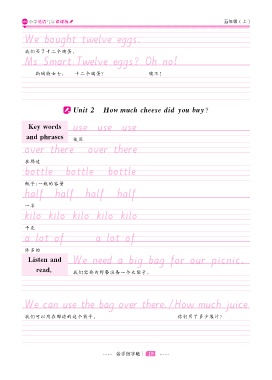 五年级（上）
We bought twelve eggs.
我们买了十二个鸡蛋。
Ms Smart:Twelve eggs? Oh no!
斯玛特女士： 十二个鸡蛋？ 噢不！
Unit 2 How much cheese did you buy?
Key words and phrases
use use use
使用
over there over there
在那边
bottle bottle bottle
瓶子;一瓶的容量
half half half half
一半
kilo kilo kilo kilo kilo
千克
a lot of a lot of
许多的
Listen and read,
We need a big bag for our picnic.
我们需要为野餐准备一个大袋子。
We can use the bag over there./How much juice
我们可以用在那边的这个包子。 你们买了多少果汁？
19